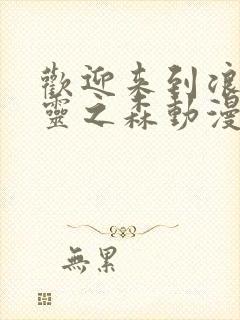 歡迎来到浪
靈之森動漫
無累